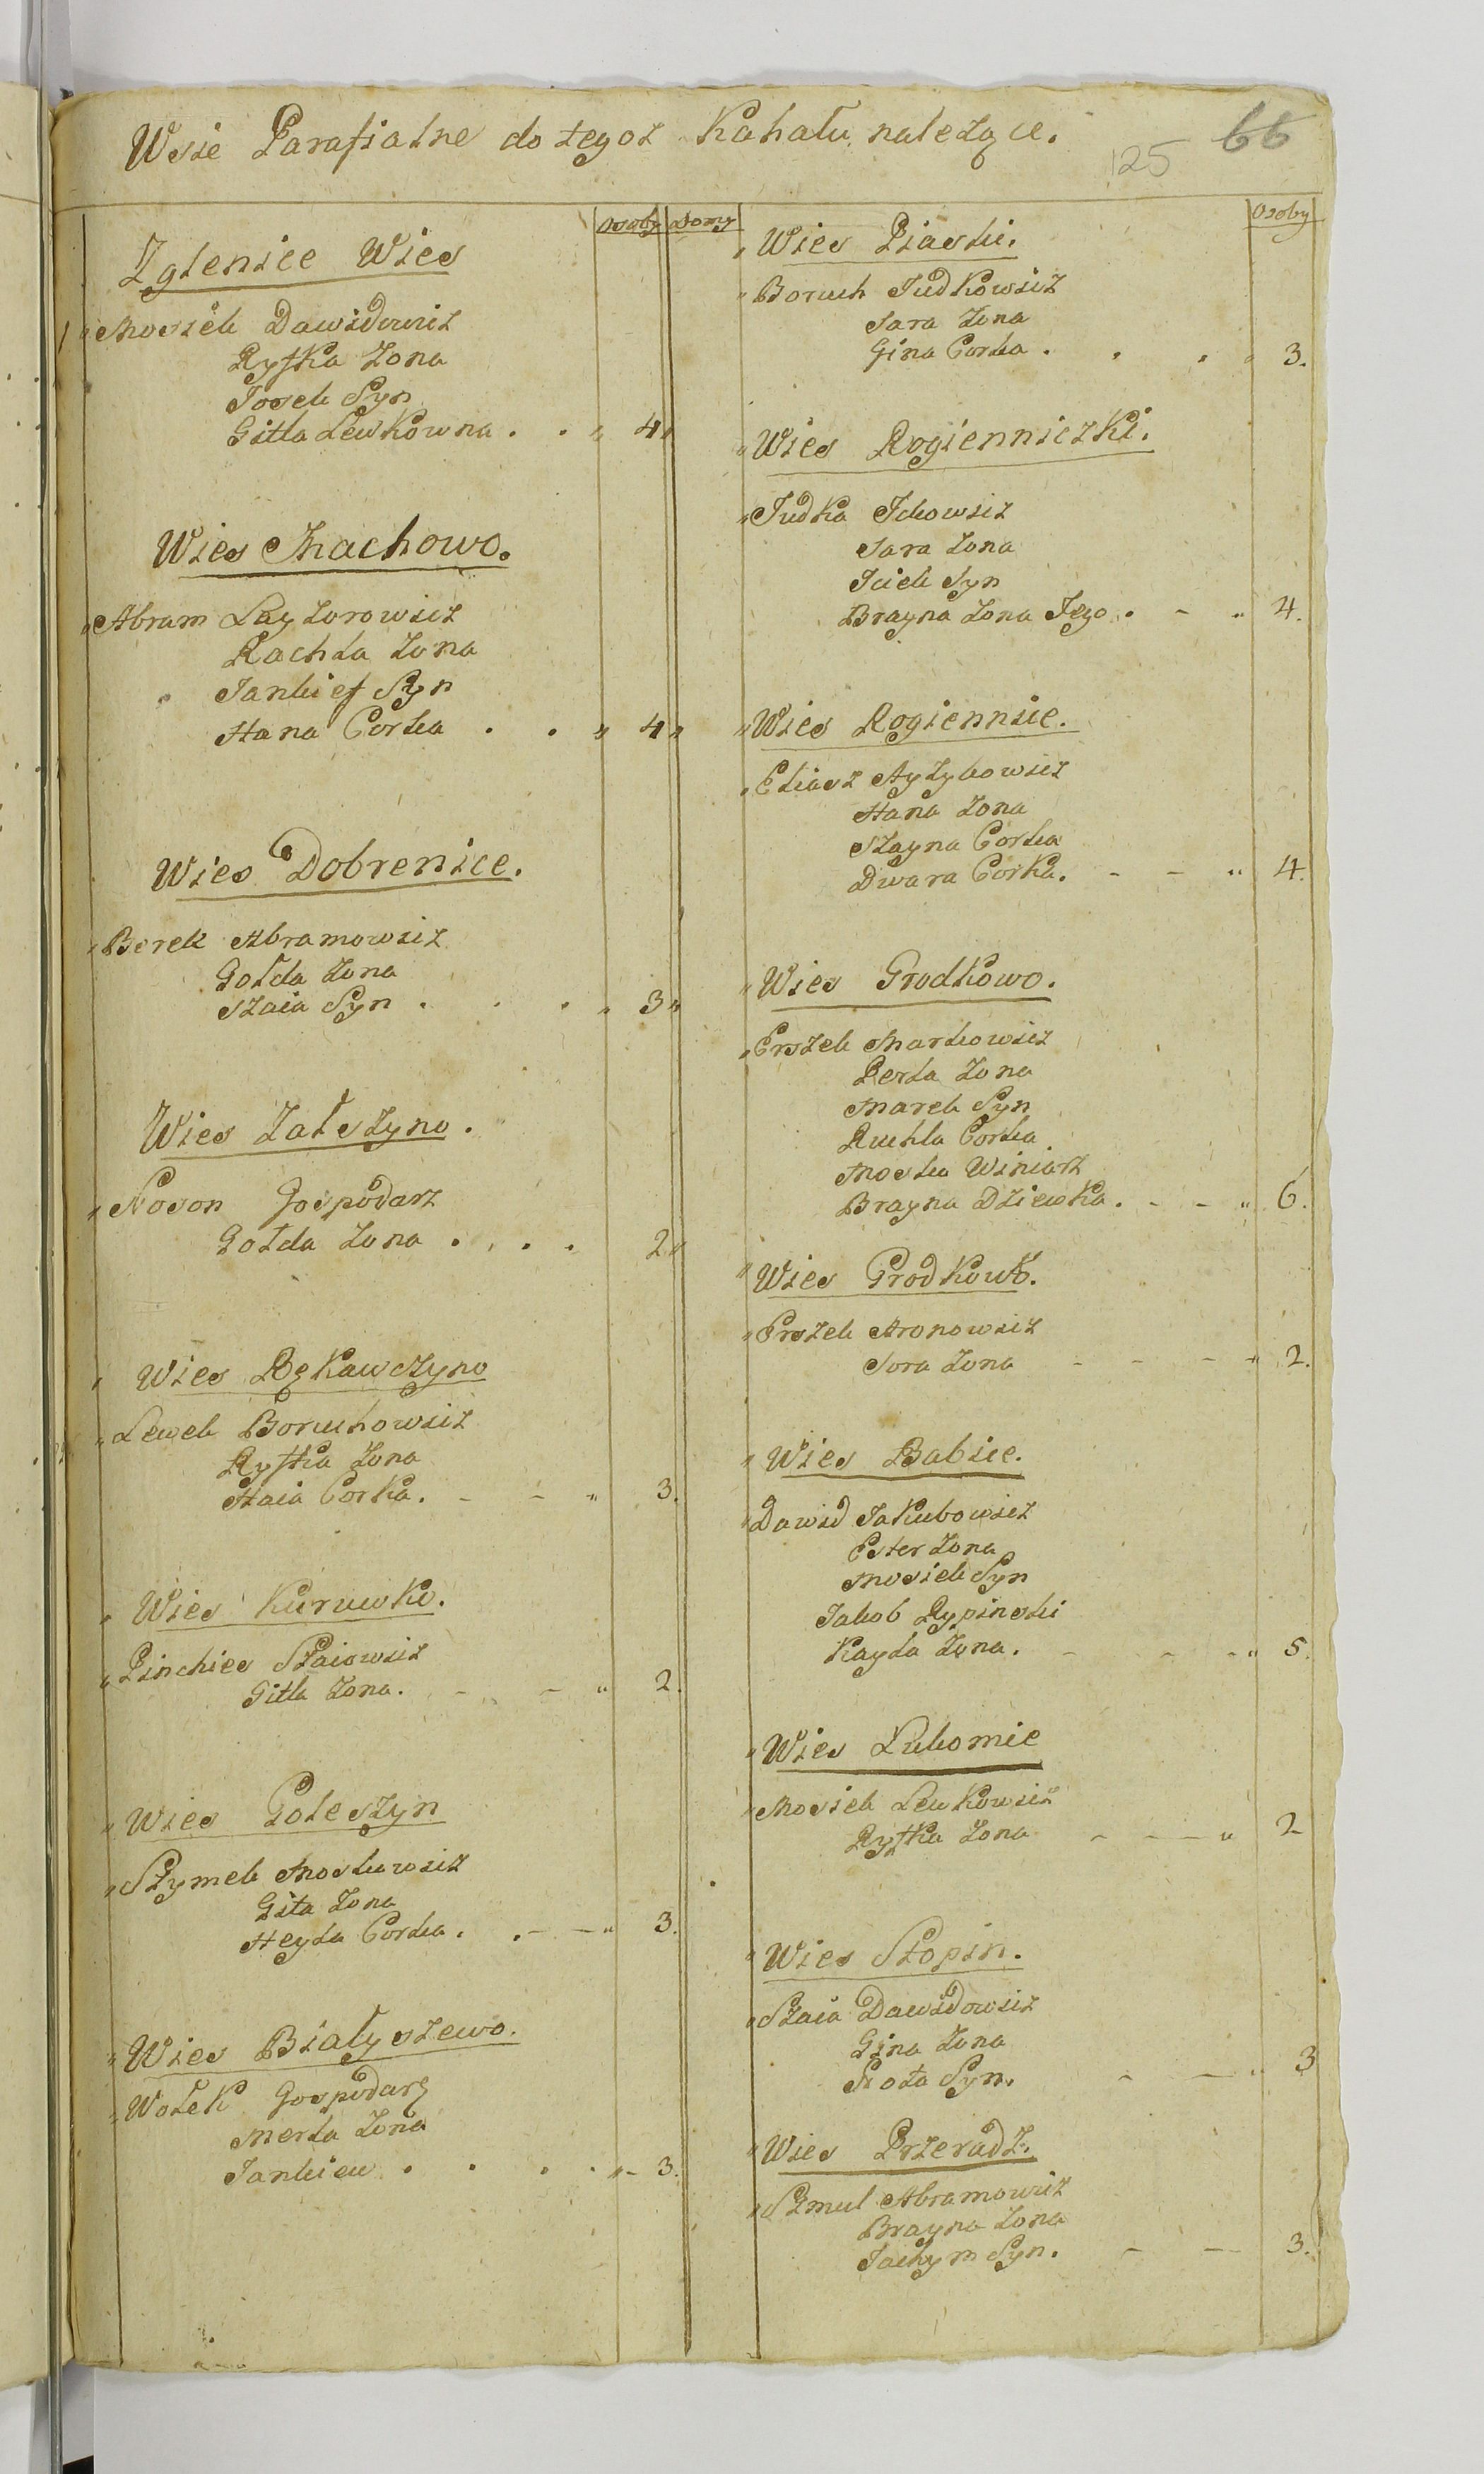 Wsie Parafialne do tegoż Kahału należące.
125 66
Osoby Domy
Zglenice Wies
Mosiek Dawidowicz
Ryfka Zona
Josek Syn
Gitla Lewkowna . . " 4 "
Wies Machowo.
Abram Layzorowicz
Rachla Zona
Jankief Syn
Hana Corka . . " 4 "
Wies Dobrenice.
Berek Abramowicz
Gołda Zona
Szaia Syn . . . " 3 "
Wies Załszyno.
Noson Gospodarz
Gołda Zona . . . . 2 "
Wies Rękawczyno
Lewek Boruchowicz
Ryfka Zona
Haia Corka . - - " 3.
Wies Kuruwko.
Pinchies Szaiowicz
Gitla Zona . - - " 2.
Wies Goleszyn
Szymek Moskowicz
Gita Zona
Heyla Corka . . - - " 3.
Wies Białyszewo.
Wołek Gospodarz
Merla Zona
Jankiew . . . . " - 3.
Osoby
Wies Piaski.
Boruch Judkowicz
Sara Zona
Gina Corka . . . " 3.
Wies Rogienniczki.
Judka Ickowicz
Sara Zona
Iciek Syn
Brayna Zona Jego . - " 4.
Wies Rogiennice.
Eliasz Ayzykowicz
Hana Zona
Szayna Corka
Dwara Corka. - - " 4.
Wies Grodkowo.
Erszek Markowicz
Perla Zona
Marek Syn
Ruchla Corka
Moska Winiarz
Brayna Dziewka . - - " 6.
Wies Grodkowk.
Erszek Aronowicz
Sora Zona - - - " 2.
Wies Babice.
Dawid Jakubowicz
Ester Zona
Mosiek Syn
Jakob Rypinski
Kayla Zona . - - - " 5.
Wies Lukomie
Mosiek Lewkowicz
Ryfka Zona - - - " 2
Wies Słopin.
Szaia Dawidowicz
Gina Zona
Syn. - - " 3
Wies Przeradz.
Szmul Abramowicz
Brayna Zona
Jachym Syn. - - 3.